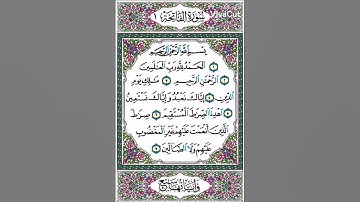 سُورَةُ الْفَاتِحَةِ ١
VivaCut
بِسْمِ اللَّهِ الرَّحْمَٰنِ الرَّحِيمِ
الْحَمْدُ لِلَّهِ رَبِّ الْعَالَمِينَ
الرَّحْمَٰنِ الرَّحِيمِ مَالِكِ يَوْمِ
الدِّينِ إِيَّاكَ نَعْبُدُ وَإِيَّاكَ نَسْتَعِينُ
اهْدِنَا الصِّرَاطَ الْمُسْتَقِيمَ صِرَاطَ
الَّذِينَ أَنْعَمْتَ عَلَيْهِمْ غَيْرِ الْمَغْضُوبِ
عَلَيْهِمْ وَلَا الضَّالِّينَ